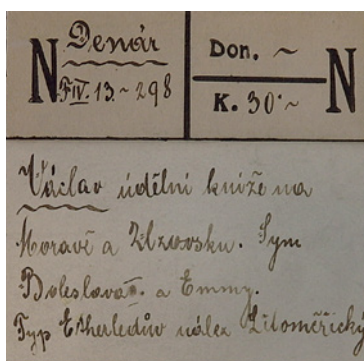 Denár
N
F IV. 13. ~ 298
Don. ~
K. 30·~
N
Václav údělní kníže na
Moravě a Zlzovsku. Syn
Boleslava 2. a Emmy.
Typ Etherledův nález Litoměřický